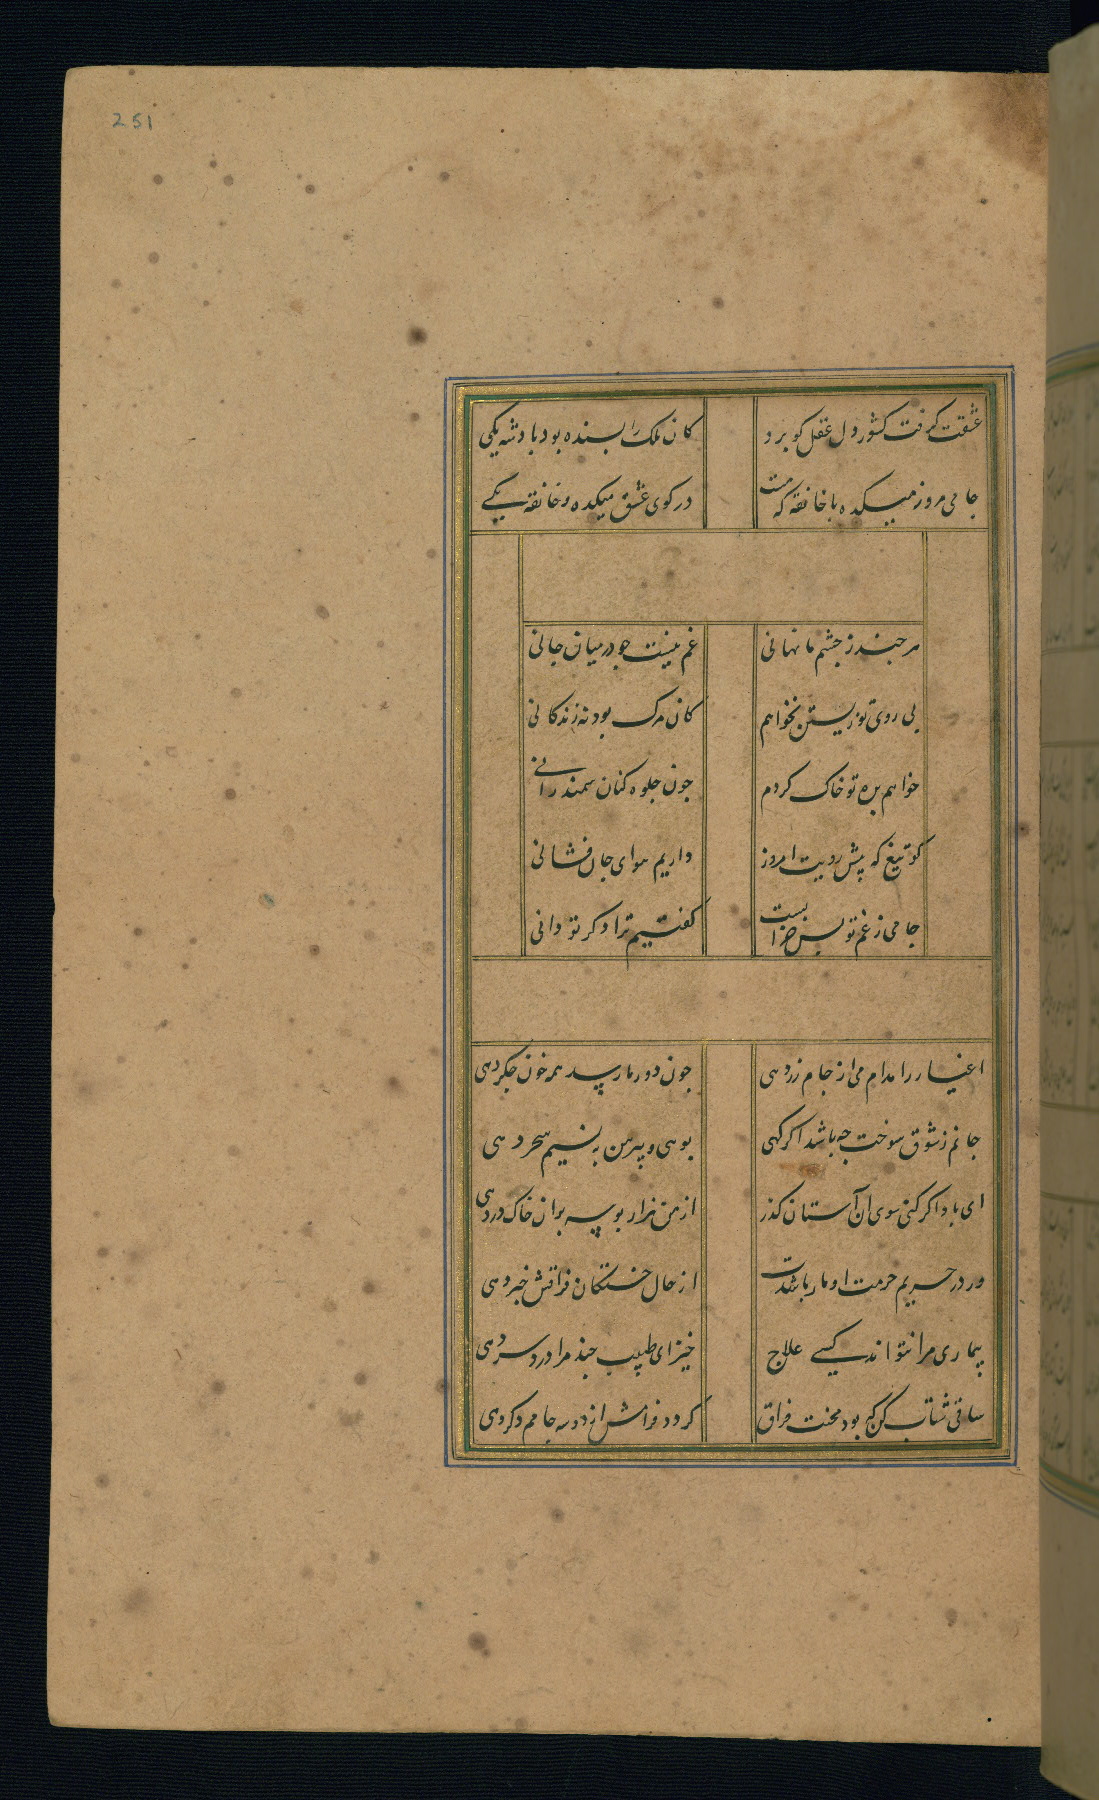 251
عشقت گرفت کشور دل عقل کو برو
کان ملک را بسنده بود بادشه یکی
جامی مرو ز میکده با خانقه که هست
در کوی عشق میکده و خانقه یکی
هر چند ز چشم ما نهانی
غم نیست چو در میان جانی
بی روی تو زیستن نخواهم
کان مرک بود نه زندکانی
خواهم بره تو خاک کردم
چون جلوه کنان سمند رانی
کو تیغ که پیش رویت امروز
داریم هوای جان فشانی
جامی ز غم تو بس خرابست
کفتیم ترا دکر تو دانی
اغیار را مدام می از جام زر دهی
چون دور ما رسد همه خون جکر دهی
جانم ز شوق سوخت چه باشد اکر کهی
بوهی و پیرهن به نسیم سحر دهی
ای باد اکر کنی سوی آن آستان کذر
از من هزار بوسه بران خاک در دهی
ور در حریم حرمت او بار باشدت
از حال خستکان فراقش خبر دهی
بیماری مرا نتواند کسی علاج
خیز ای طبیب چند مرا درد سر دهی
ساقی شتاب کن که بود محنت فراق
کردد فرامش از دو سه جامم دکر دهی